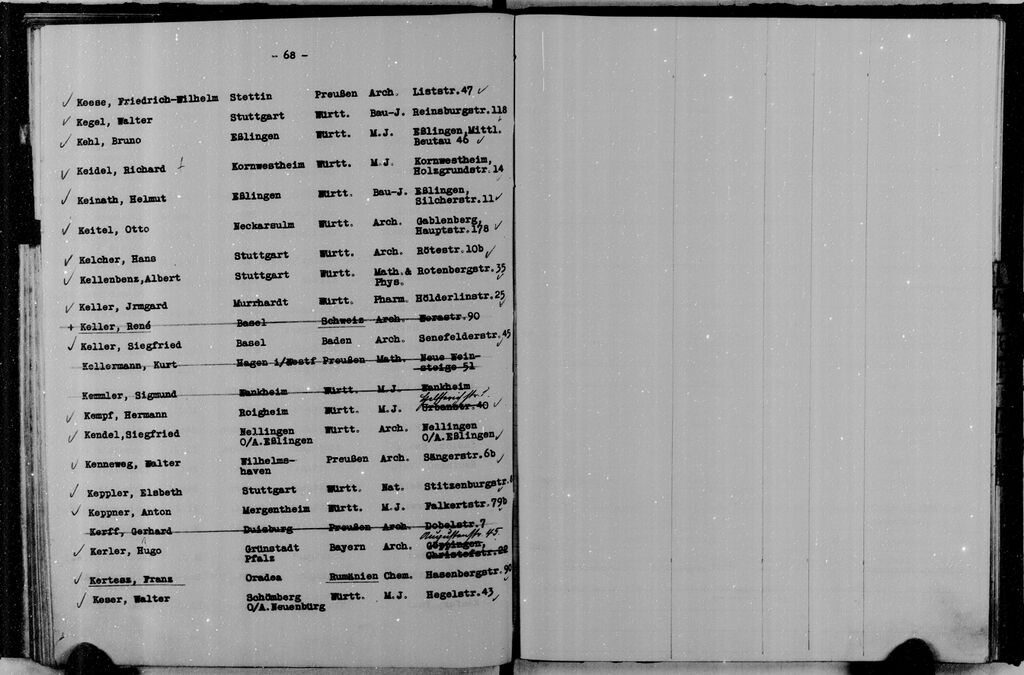 - 68 -
Keese, Friedrich-Wilhelm Stettin Preußen Arch. Liststr.47
Kegel, Walter Stuttgart Württ. Bau-J. Reinsburgstr.118
Kehl, Bruno Eßlingen Württ. M.J. Eßlingen,Mittl.
Beutau 46
Keidel, Richard Kornwestheim Württ. M.J. Kornwestheim,
Holzgrundstr.14
Keinath, Helmut Eßlingen Württ. Bau-J. Eßlingen,
Silcherstr.11
Keitel, Otto Neckarsulm Württ. Arch. Gablenberg,
Hauptstr.178
Kelcher, Hans Stuttgart Württ. Arch. Rötestr.10b
Kellenbenz,Albert Stuttgart Württ. Math.& Rotenbergstr.35
Phys.
Keller, Jrmgard Murrhardt Württ. Pharm. Hölderlinstr.25
+ Keller, René Basel Schweiz Arch. Werastr.90
Keller, Siegfried Basel Baden Arch. Senefelderstr.45
Kellermann, Kurt Hagen i/Westf Preußen Math. Neue Wein-
steige 51
Kemmler, Sigmund Wankheim Württ. M.J. Wankheim
Kempf, Hermann Roigheim Württ. M.J. Urbanstr.40
Kendel,Siegfried Nellingen Württ. Arch. Nellingen
O/A.Eßlingen O/A.Eßlingen
Kenneweg, Walter Wilhelms- Preußen Arch. Sängerstr.6b
haven
Keppler, Elsbeth Stuttgart Württ. Nat. Stitzenburgstr.
Keppner, Anton Mergentheim Württ. M.J. Falkertstr.79b
Kerff, Gerhard Duisburg Preußen Arch. Dobelstr.7
Augustenstr 45.
Kerler, Hugo Grünstadt Bayern Arch. Göppingen,
Pfalz Christofstr.22
Kertesz, Franz Oradea Rumänien Chem. Hasenbergstr.90
Keser, Walter Schömberg Württ. M.J. Hegelstr.43
O/A.Neuenbürg